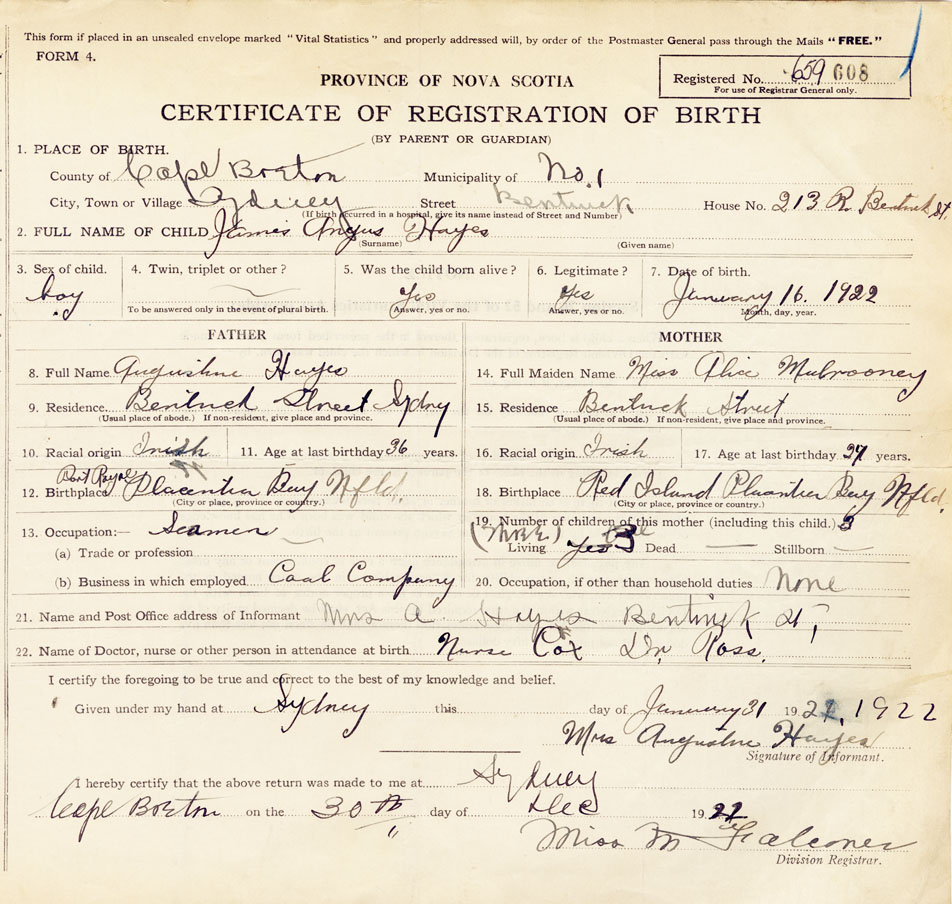 This form if placed in an unsealed envelope marked "Vital Statistics" and properly addressed will, by order of the Postmaster General pass through the Mails "FREE."
FORM 4.
Registered No. 659 608
For use of Registrar General only.
PROVINCE OF NOVA SCOTIA
CERTIFICATE OF REGISTRATION OF BIRTH
(BY PARENT OR GUARDIAN)
1. PLACE OF BIRTH.
County of Cape Breton Municipality of No. 1
City, Town or Village Sydney Street Bentinck House No. 213 R. Bentinck St.
(If birth occurred in a hospital, give its name instead of Street and Number)
2. FULL NAME OF CHILD James Angus Hayes
(Surname) (Given name)
3. Sex of child. 4. Twin, triplet or other? 5. Was the child born alive? 6. Legitimate? 7. Date of birth.
boy Yes Yes January 16. 1922
To be answered only in the event of plural birth. Answer, yes or no. Answer, yes or no. Month, day, year.
FATHER MOTHER
8. Full Name Augustine Hayes 14. Full Maiden Name Miss Alice Mulrooney
9. Residence. Bentinck Street Sydney 15. Residence Bentuck Street
(Usual place of abode.) If non-resident, give place and province. (Usual place of abode.) If non-resident, give place and province.
10. Racial origin Irish 11. Age at last birthday 36 years. 16. Racial origin Irish 17. Age at last birthday years.
Port Royal
12. Birthplace Placentia Bay Nfld. 18. Birthplace Red Island Placentia Bay Nfld.
(City or place, province or country.) (City or place, province or country.)
13. Occupation:— Seamen 19. Number of children of this mother (including this child.) 3
(Three) Living Yes 3 Dead — Stillborn —
(a) Trade or profession
(b) Business in which employed Coal Company 20. Occupation, if other than household duties None
21. Name and Post Office address of Informant Mrs A. Hayes Bentinck St,
22. Name of Doctor, nurse or other person in attendance at birth Nurse Cox Dr. Ross.
I certify the foregoing to be true and correct to the best of my knowledge and belief.
Given under my hand at Sydney this day of January 31 1922, 1922
Mrs Augustine Hayes
Signature of Informant.
I hereby certify that the above return was made to me at Sydney
Cape Breton on the 30th day of Dec 1922
Miss M Falconer
Division Registrar.